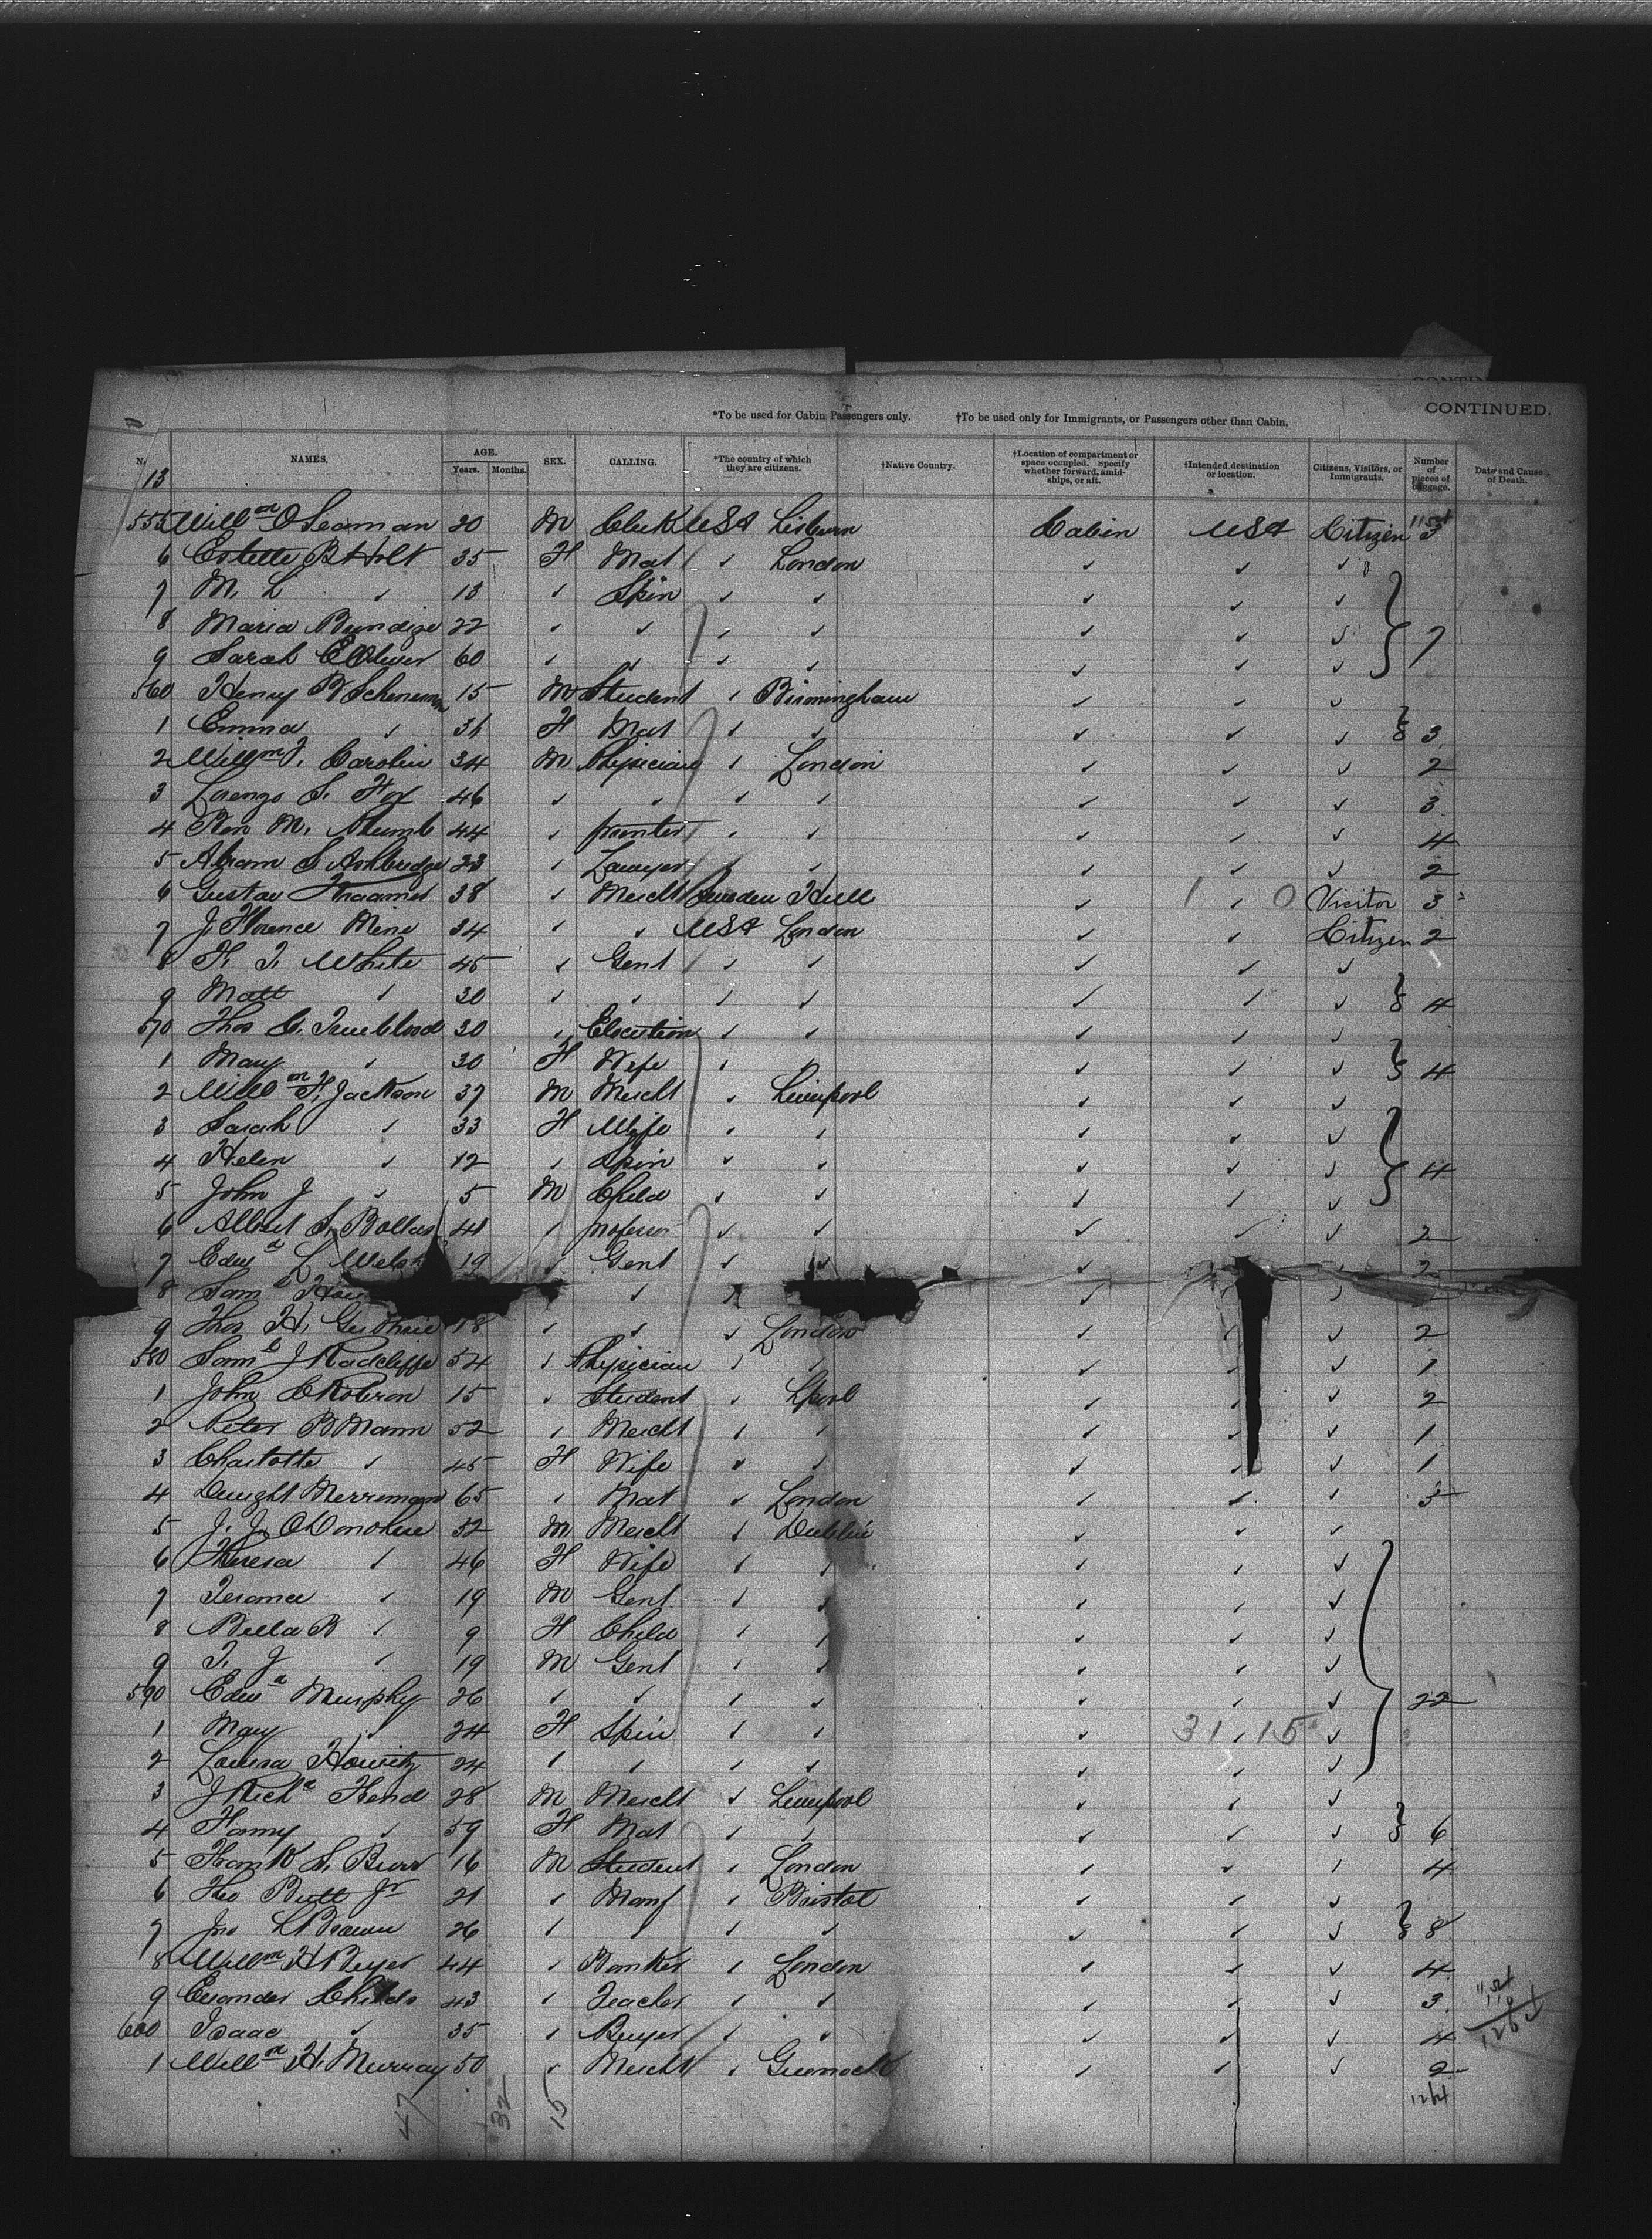 CONTINUED.
*To be used for Cabin Passengers only. †To be used only for Immigrants, or Passengers other than Cabin.
No. NAMES. AGE. Years. Months. SEX. CALLING. *The country of which they are citizens. †Native Country. †Location of compartment or space occupied. Specify whether forward, amidships, or aft. †Intended destination or location. Citizens, Visitors, or Immigrants. Number of pieces of baggage. Date and Cause of Death.
13
555 Willm O Seaman 20 M Clerk USA Lisburn Cabin USA Citizen 3
6 Estelle B Holt 35 F Mat ✓ London ✓ ✓ ✓
7 M. L ✓ 13 ✓ Spin ✓ ✓ ✓ ✓ ✓
8 Maria 22 ✓ ✓ ✓ ✓ ✓ ✓ ✓ 7
9 Sarah E Oliver 60 ✓ ✓ ✓ ✓ ✓ ✓ ✓
560 Henry B 15 M Student ✓ Birmingham ✓ ✓ ✓
1 Emma ✓ 36 F Mat ✓ ✓ ✓ ✓ ✓ 3
2 Willm J. Carolin 34 M Physician ✓ London ✓ ✓ ✓ 2
3 Lorenzo S. Fox 46 ✓ ✓ ✓ ✓ ✓ ✓ ✓ 3
4 Ben M. Plumb 44 ✓ printer ✓ ✓ ✓ ✓ ✓ 4
5 Abram S Ashbridge 23 ✓ Lawyer ✓ ✓ ✓ ✓ ✓ 2
6 Gustav 38 ✓ Mercht Sweden Hull ✓ 1 ✓ 0 Visitor 3
7 J. Florence 34 ✓ ✓ USA London ✓ ✓ Citizen 2
8 F. J. White 45 ✓ Gent ✓ ✓ ✓ ✓ ✓
9 Matt ✓ 30 ✓ ✓ ✓ ✓ ✓ ✓ ✓ 4
570 Thos C. Trueblood 30 ✓ Elocution ✓ ✓ ✓ ✓ ✓
1 Mary ✓ 30 F Wife ✓ ✓ ✓ ✓ ✓ 4
2 Willm H. Jackson 37 M Mercht ✓ Liverpool ✓ ✓ ✓
3 Sarah ✓ 33 F Wife ✓ ✓ ✓ ✓ ✓
4 Helen ✓ 12 ✓ Spin ✓ ✓ ✓ ✓ ✓ 4
5 John J ✓ 5 M Child ✓ ✓ ✓ ✓ ✓
6 Albert S. Bolles 41 ✓ professor ✓ ✓ ✓ ✓ ✓ 2
7 Edwd L Welsh 19 ✓ Gent ✓ ✓ ✓ ✓ ✓ 2
8 Saml ✓ ✓ ✓ ✓ ✓
9 Thos H. Guthrie 18 ✓ ✓ ✓ London ✓ ✓ ✓ 2
580 Saml J Radcliffe 54 ✓ Physician ✓ ✓ ✓ ✓ ✓ 1
1 John C Robson 15 ✓ Student ✓ Lpool ✓ ✓ ✓ 2
2 Peter B Mann 52 ✓ Mercht ✓ ✓ ✓ ✓ ✓ 1
3 Charlotte ✓ 45 F Wife ✓ ✓ ✓ ✓ ✓ 1
4 Dwight Merriman 65 ✓ Mat ✓ London ✓ ✓ ✓ 3
5 J. J. O'Donohue 52 M Mercht ✓ Dublin ✓ ✓ ✓
6 Theresa ✓ 46 F Wife ✓ ✓ ✓ ✓ ✓
7 ✓ 19 M Gent ✓ ✓ ✓ ✓ ✓
8 Bella B ✓ 9 F Child ✓ ✓ ✓ ✓ ✓
9 T. J ✓ 19 M Gent ✓ ✓ ✓ ✓ ✓
590 Edwd Murphy 26 ✓ ✓ ✓ ✓ ✓ ✓ ✓ 22
1 May ✓ 24 F Spin ✓ ✓ ✓ 31 ✓ 15 ✓
2 Louisa 24 ✓ ✓ ✓ ✓ ✓ ✓ ✓
3 J Richd 28 M Mercht ✓ Liverpool ✓ ✓ ✓
4 Fanny ✓ 59 F Mat ✓ ✓ ✓ ✓ ✓ 6
5 Frank S. Burr 16 M Student ✓ London ✓ ✓ ✓ 4
6 Theo Butt Jr 21 ✓ Manf ✓ Bristol ✓ ✓ ✓
7 Jno L Brown 26 ✓ ✓ ✓ ✓ ✓ ✓ ✓ 8
8 Willm H Beyer 44 ✓ Banker ✓ London ✓ ✓ ✓ 4
9 Childs 43 ✓ Teacher ✓ ✓ ✓ ✓ ✓ 3
600 Isaac ✓ 35 ✓ Buyer ✓ ✓ ✓ ✓ ✓ 4
1 Willm H. Murray 50 ✓ Mercht ✓ Greenock ✓ ✓ ✓ 2
47 32 15